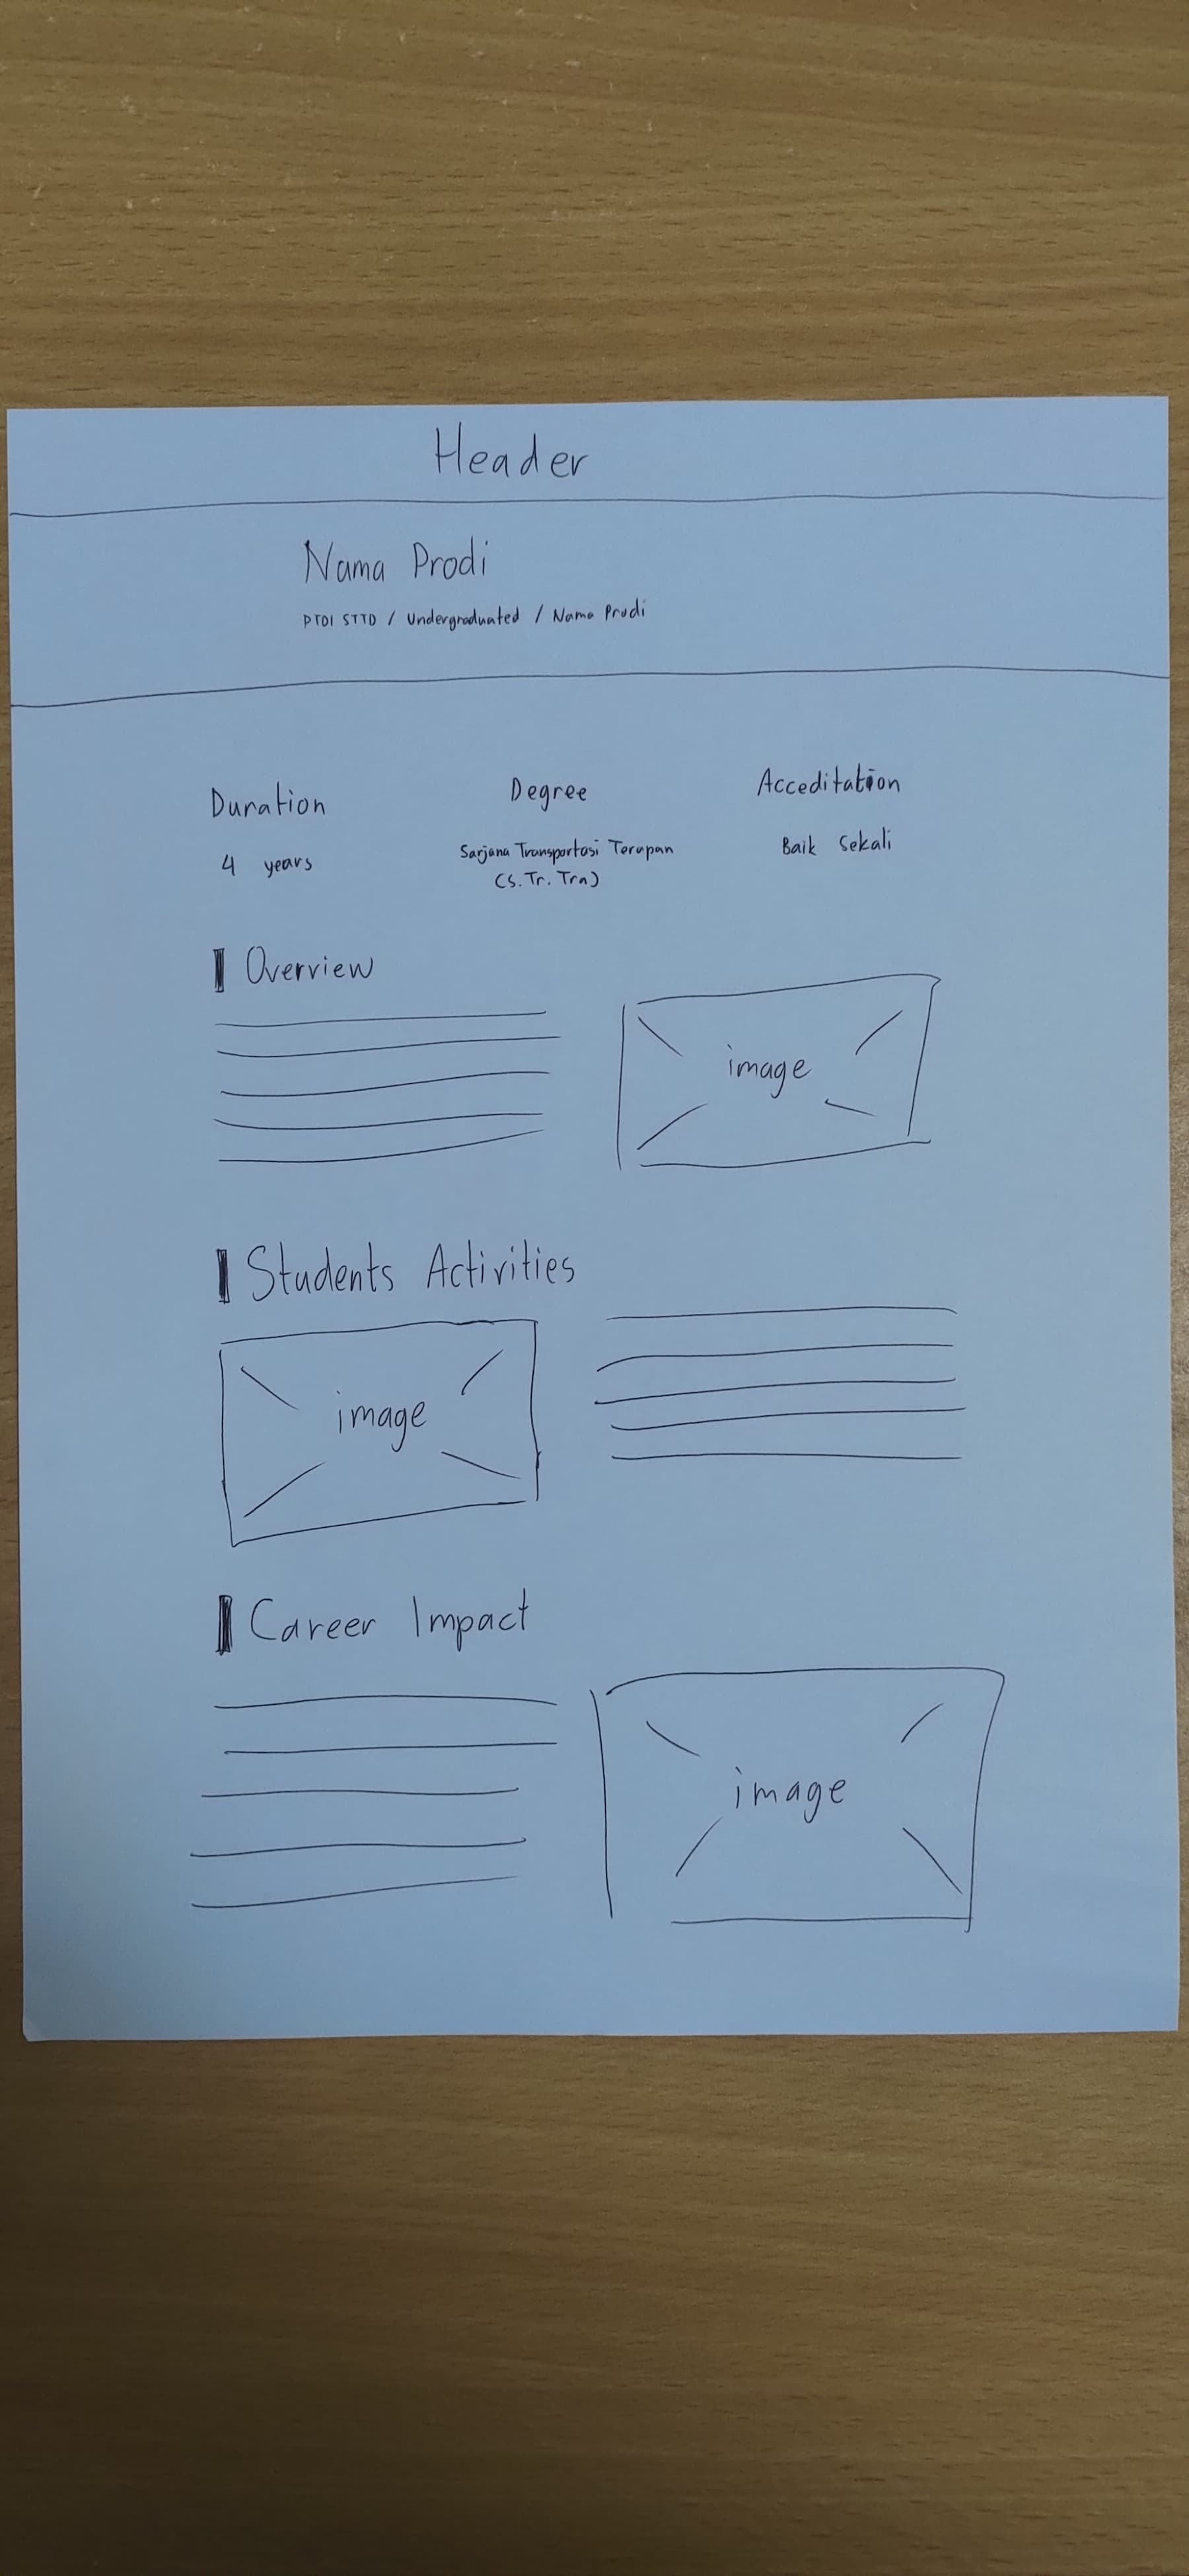 Header
Nama Prodi
PTDI STTD / Undergraduated / Nama Prodi
Duration
4 years
Degree
Sarjana Transportasi Terapan
(S.Tr. Tra)
Acceditation
Baik Sekali
Overview
image
Students Activities
image
Career Impact
image